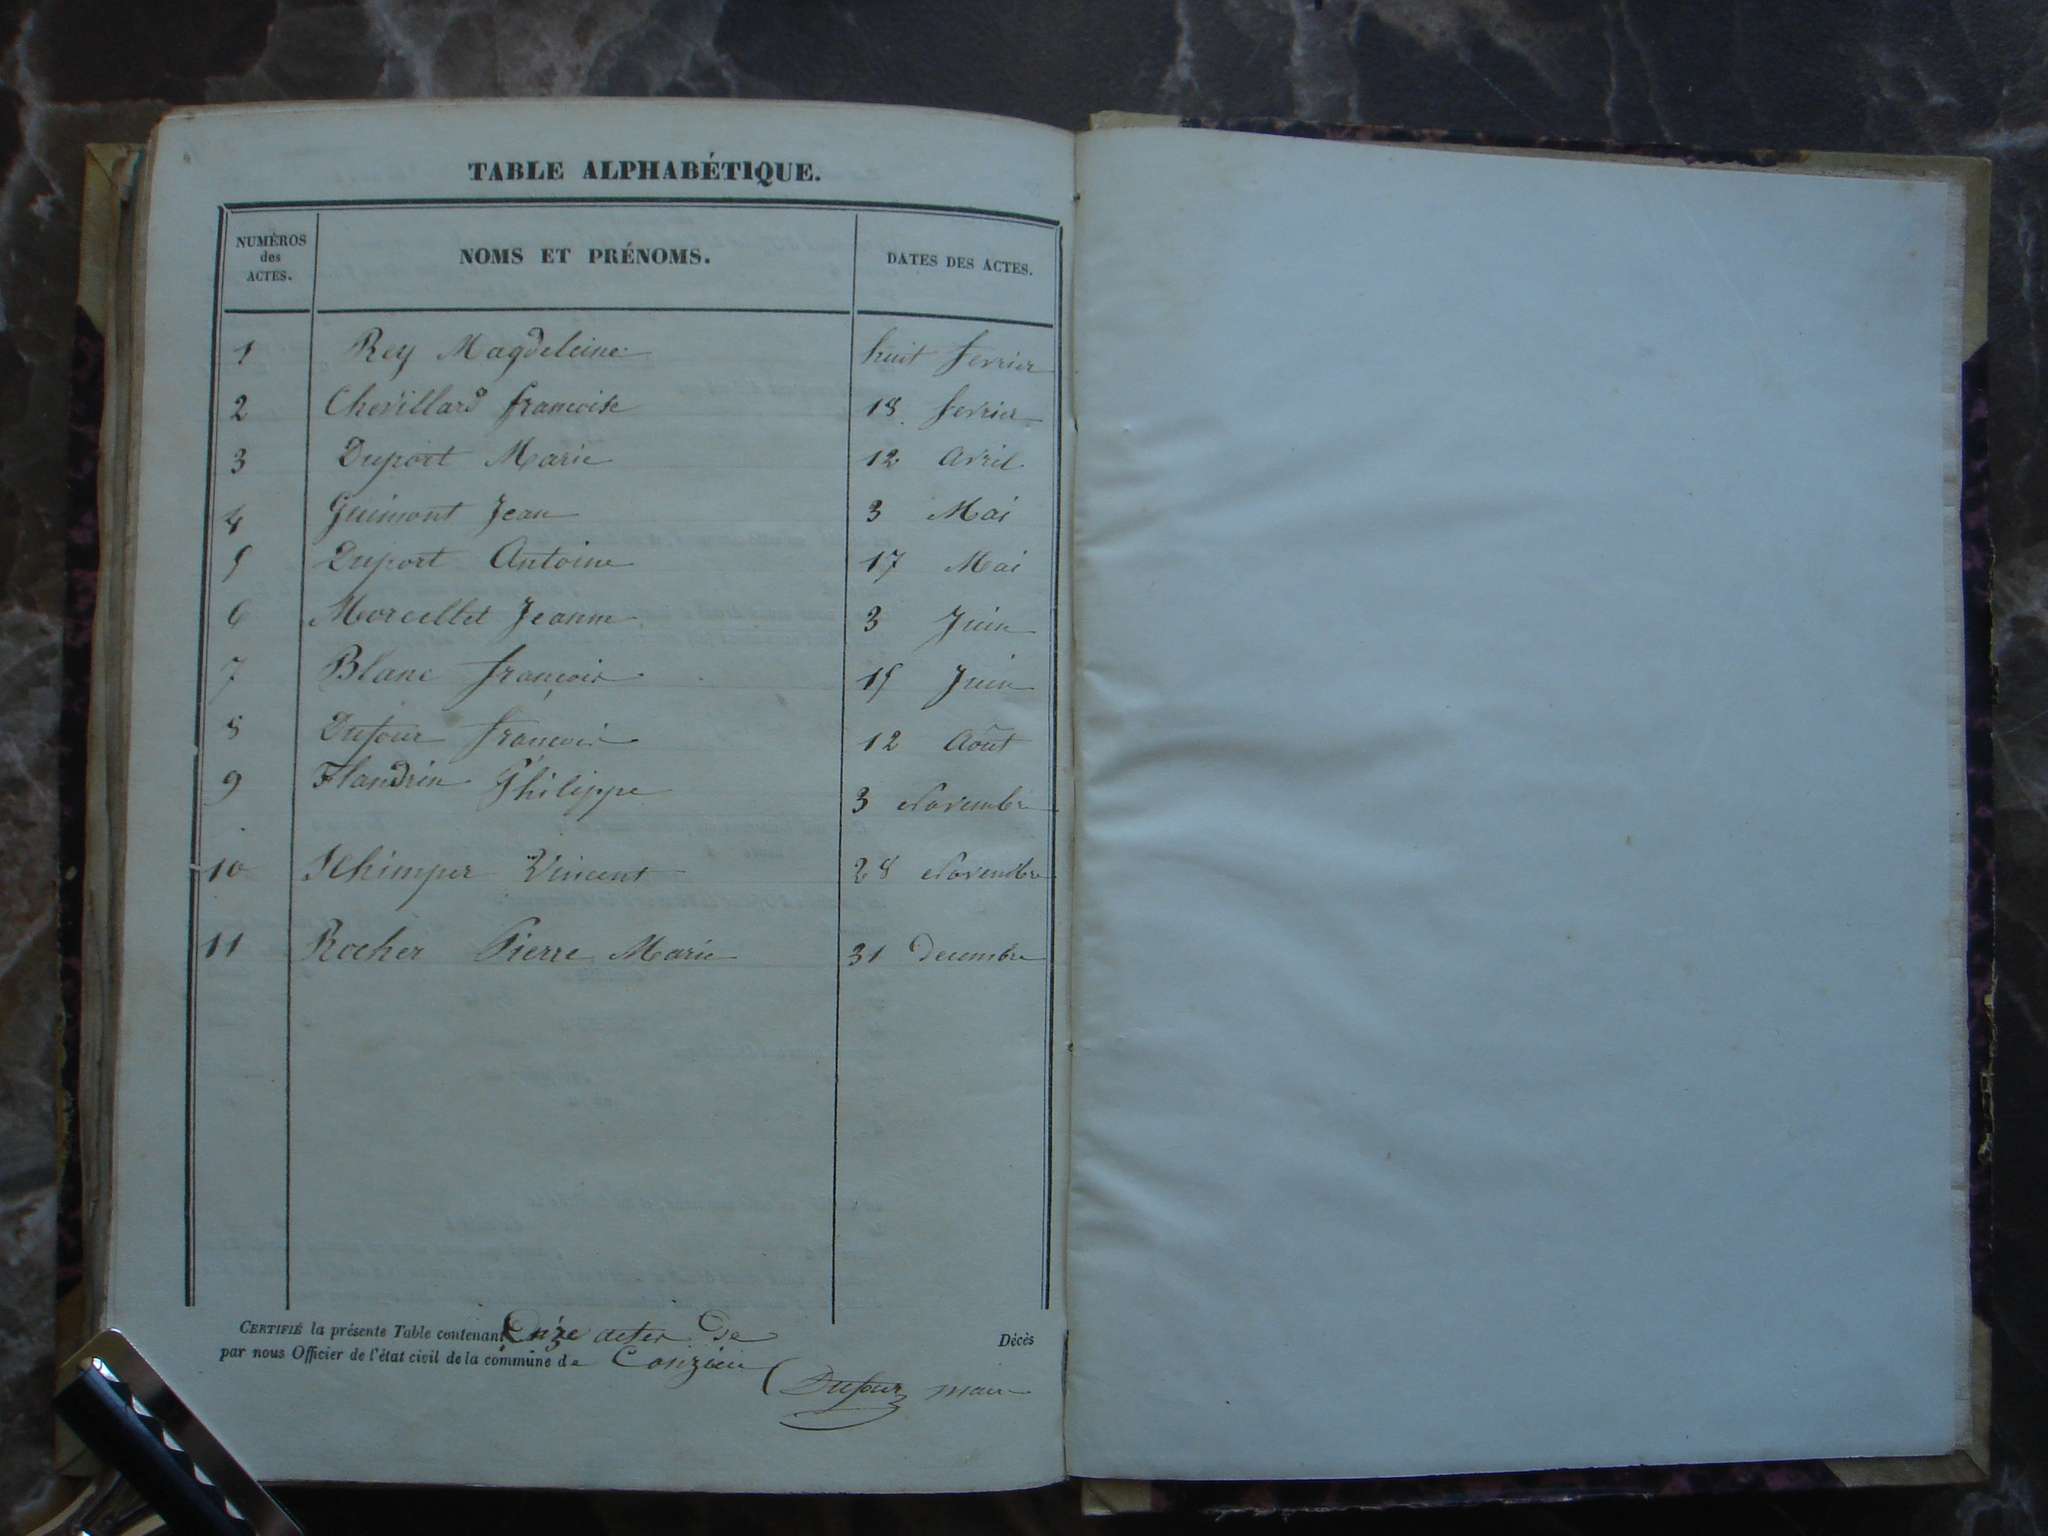 TABLE ALPHABÉTIQUE.
NUMÉROS des ACTES. NOMS ET PRÉNOMS. DATES DES ACTES.
1 Rey Magdeleine huit fevrier
2 Chevillard françoise 18 fevrier
3 Duport Marie 12 Avril
4 Guimont Jean 3 Mai
5 Duport Antoine 17 Mai
6 Morcellet Jeanne 3 Juin
7 Blanc françois 15 Juin
8 Dufour francois 12 Août
9 Flandrin Philippe 3 Novembre
10 Schimper Vincent 28 Novembre
11 Rocher Pierre Marie 31 Decembre
CERTIFIÉ la présente Table contenant Onze actes de Décès
par nous Officier de l'état civil de la commune de Conzieu
Dufour maire